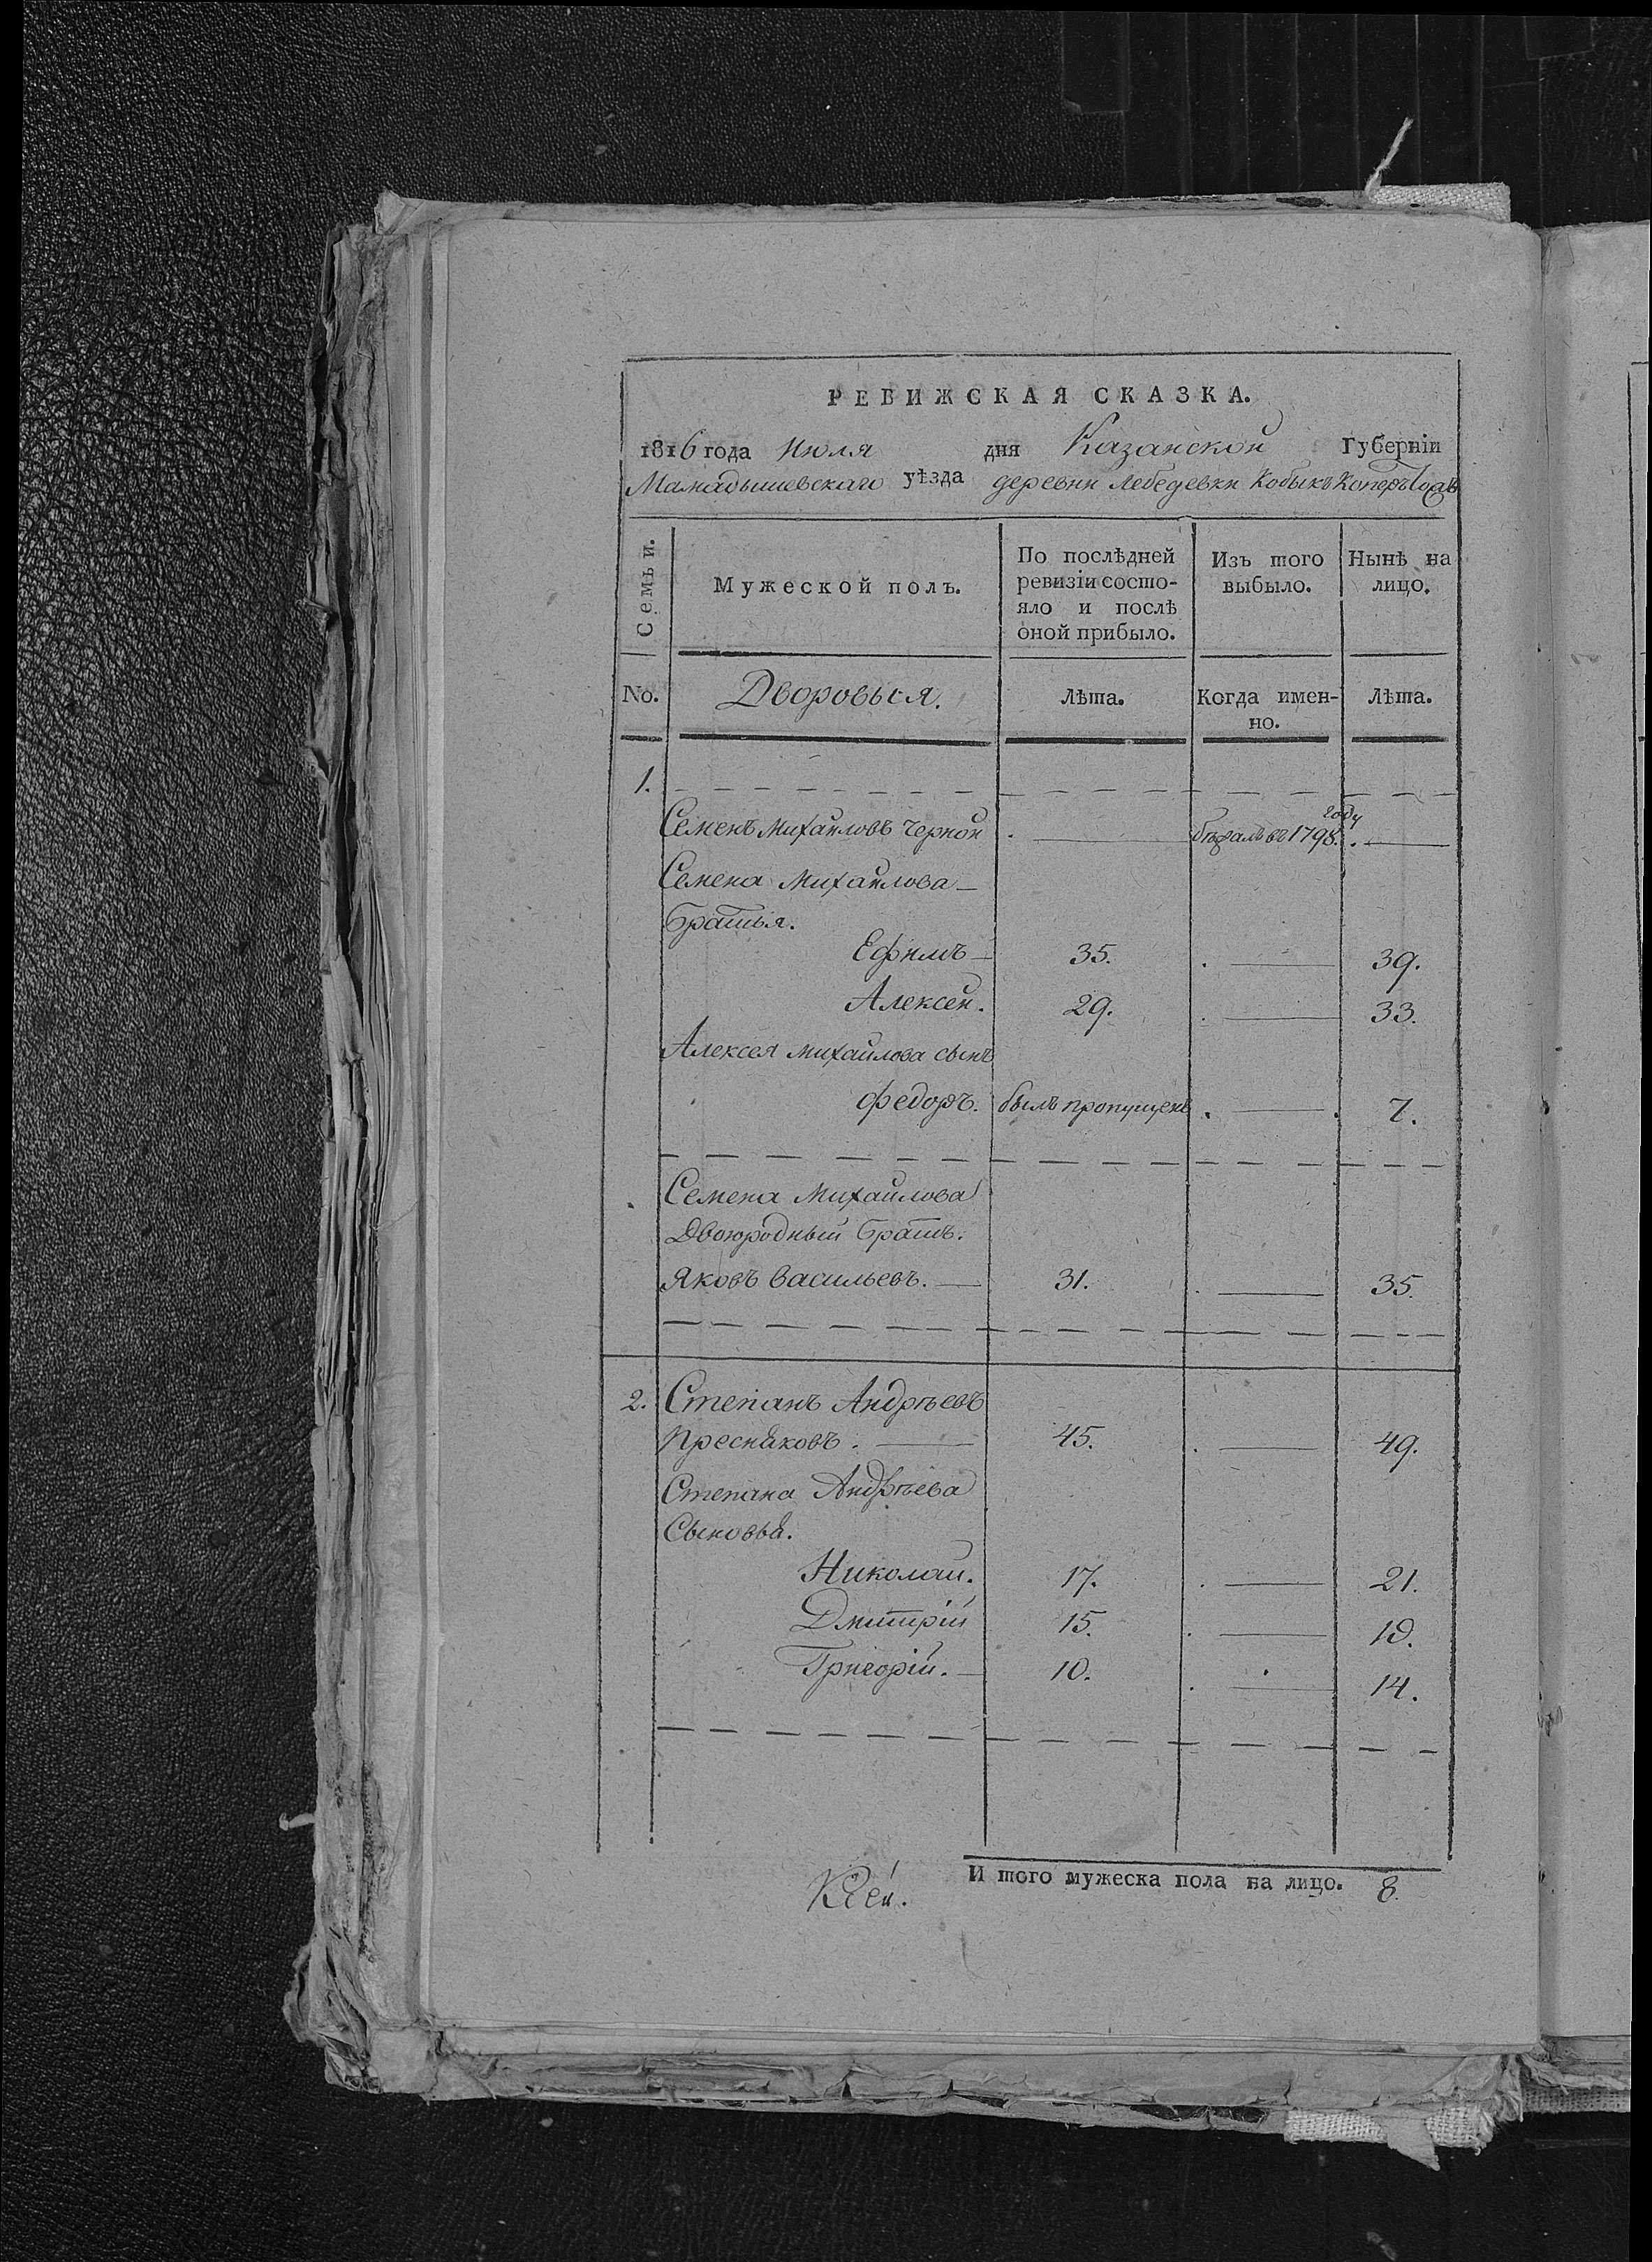 РЕВИЖСКАЯ СКАЗКА.
1816 года Июля дня Казанской Губерніи
Мамадышевскаго уѣзда деревни Лебедевки Кобыкъ Коперъ тожъ
Семьи. Мужеской полъ. По послѣдней ревизіи состо- Изъ того Нынѣ на
яло и послѣ оной прибыло. выбыло. лицо.
No. Дворовыя. Лѣта. Когда имен- Лѣта.
но.
1.
году
Семенъ Михайловъ Черной . — бѣжалъ въ 1798. . —
Семена Михайлова
братья.
Ефимъ — 35. . — 39.
Алексей. 29. . — 33.
Алексея Михайлова сынъ
Федоръ. былъ пропущенъ . — 7.
Семена Михайлова
двоюродный братъ.
Яковъ Васильевъ. — 31. . — 35.
2. Степанъ Андрѣевъ
Пресняковъ. — 45. . — 49.
Степана Андрѣева
Сыновья.
Николай. 17. . — 21.
Дмитрій 15. . — 19.
Григорій. — 10. . — 14.
И того мужеска пола на лицо. 8.